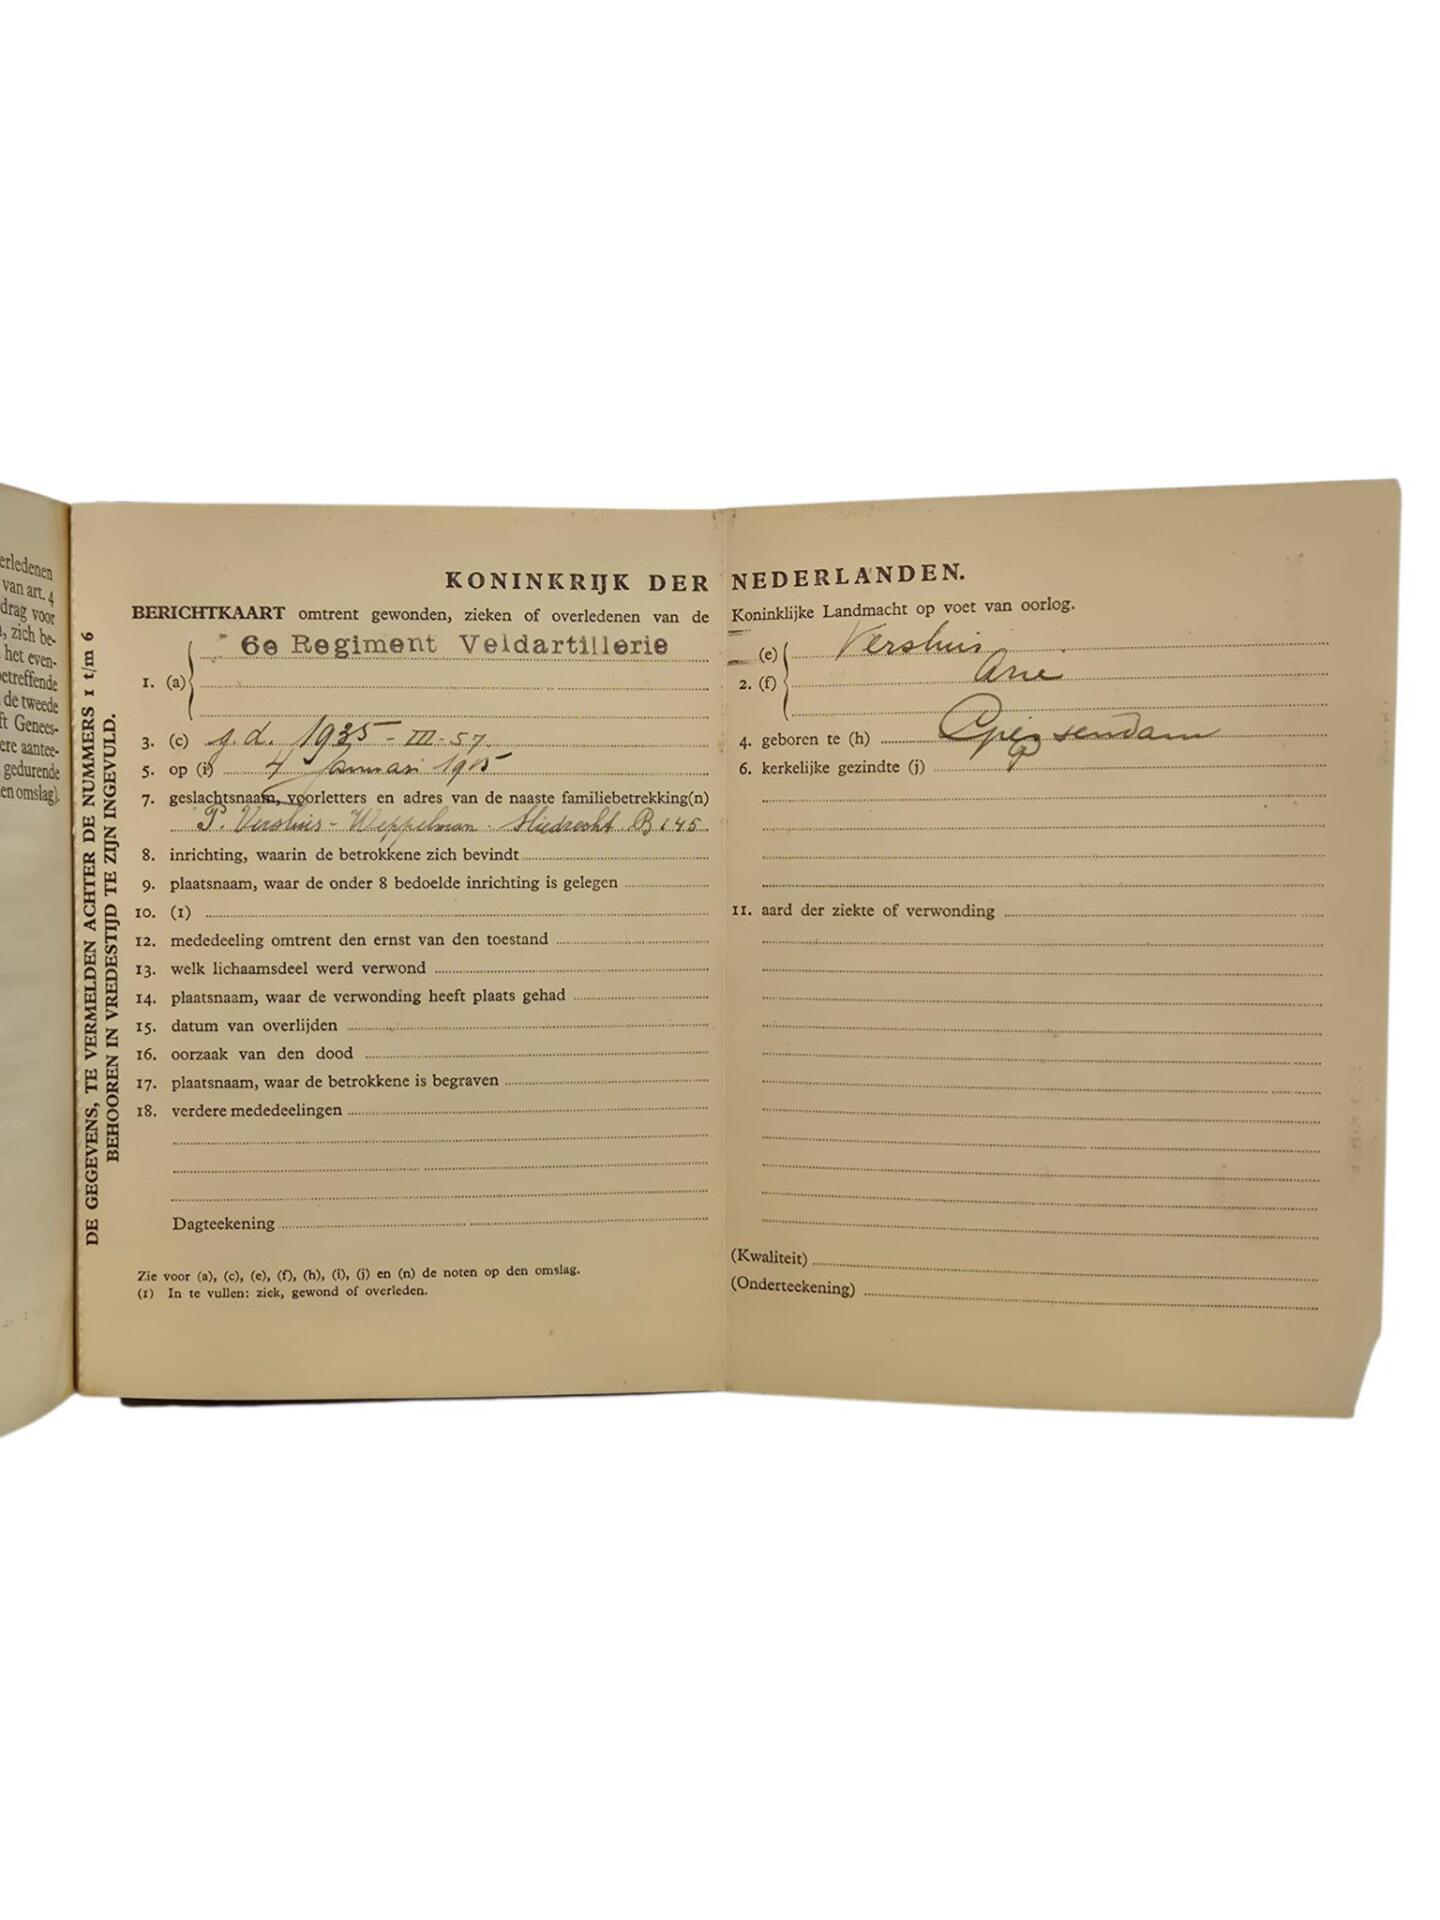 erledenen
van art. 4
drag voor
, zich be-
het even-
etreffende
de tweede
ft Genees-
ere aantee-
gedurende
en omslag).
DE GEGEVENS, TE VERMELDEN ACHTER DE NUMMERS 1 t/m 6
BEHOOREN IN VREDESTIJD TE ZIJN INGEVULD.
KONINKRIJK DER NEDERLANDEN.
BERICHTKAART omtrent gewonden, zieken of overledenen van de Koninklijke Landmacht op voet van oorlog.
6e Regiment Veldartillerie
1. (a)
(e) Versluis
2. (f) Arie
3. (c) g.d. 1925-III-57
4. geboren te (h) Giessendam
5. op (i) 4 Januari 1905
6. kerkelijke gezindte (j)
7. geslachtsnaam, voorletters en adres van de naaste familiebetrekking(n)
P. Versluis - Weppelman. Sliedrecht B 145
8. inrichting, waarin de betrokkene zich bevindt
9. plaatsnaam, waar de onder 8 bedoelde inrichting is gelegen
10. (1)
11. aard der ziekte of verwonding
12. mededeeling omtrent den ernst van den toestand
13. welk lichaamsdeel werd verwond
14. plaatsnaam, waar de verwonding heeft plaats gehad
15. datum van overlijden
16. oorzaak van den dood
17. plaatsnaam, waar de betrokkene is begraven
18. verdere mededeelingen
Dagteekening
(Kwaliteit)
(Onderteekening)
Zie voor (a), (c), (e), (f), (h), (i), (j) en (n) de noten op den omslag.
(1) In te vullen: ziek, gewond of overleden.